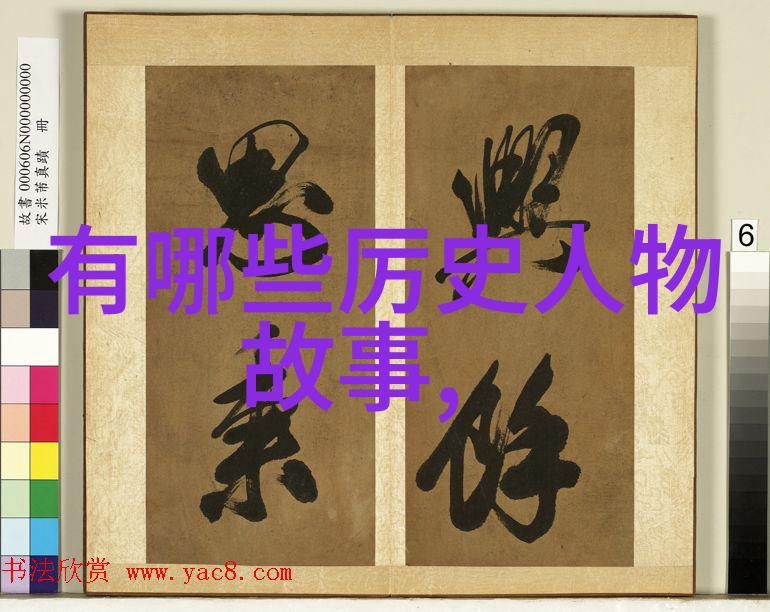 故書 000606N000000000
宋米芾真蹟 冊
興
餘
6
有哪些厉史人物
故事,
书法欣赏 www.yac8.com